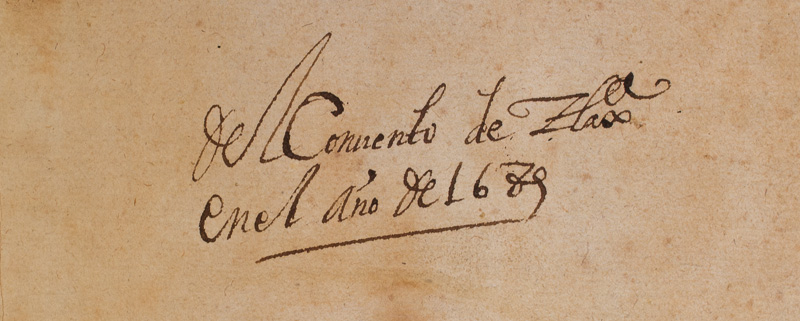 del Convento de Tlaxᵃ
en el año de 1689